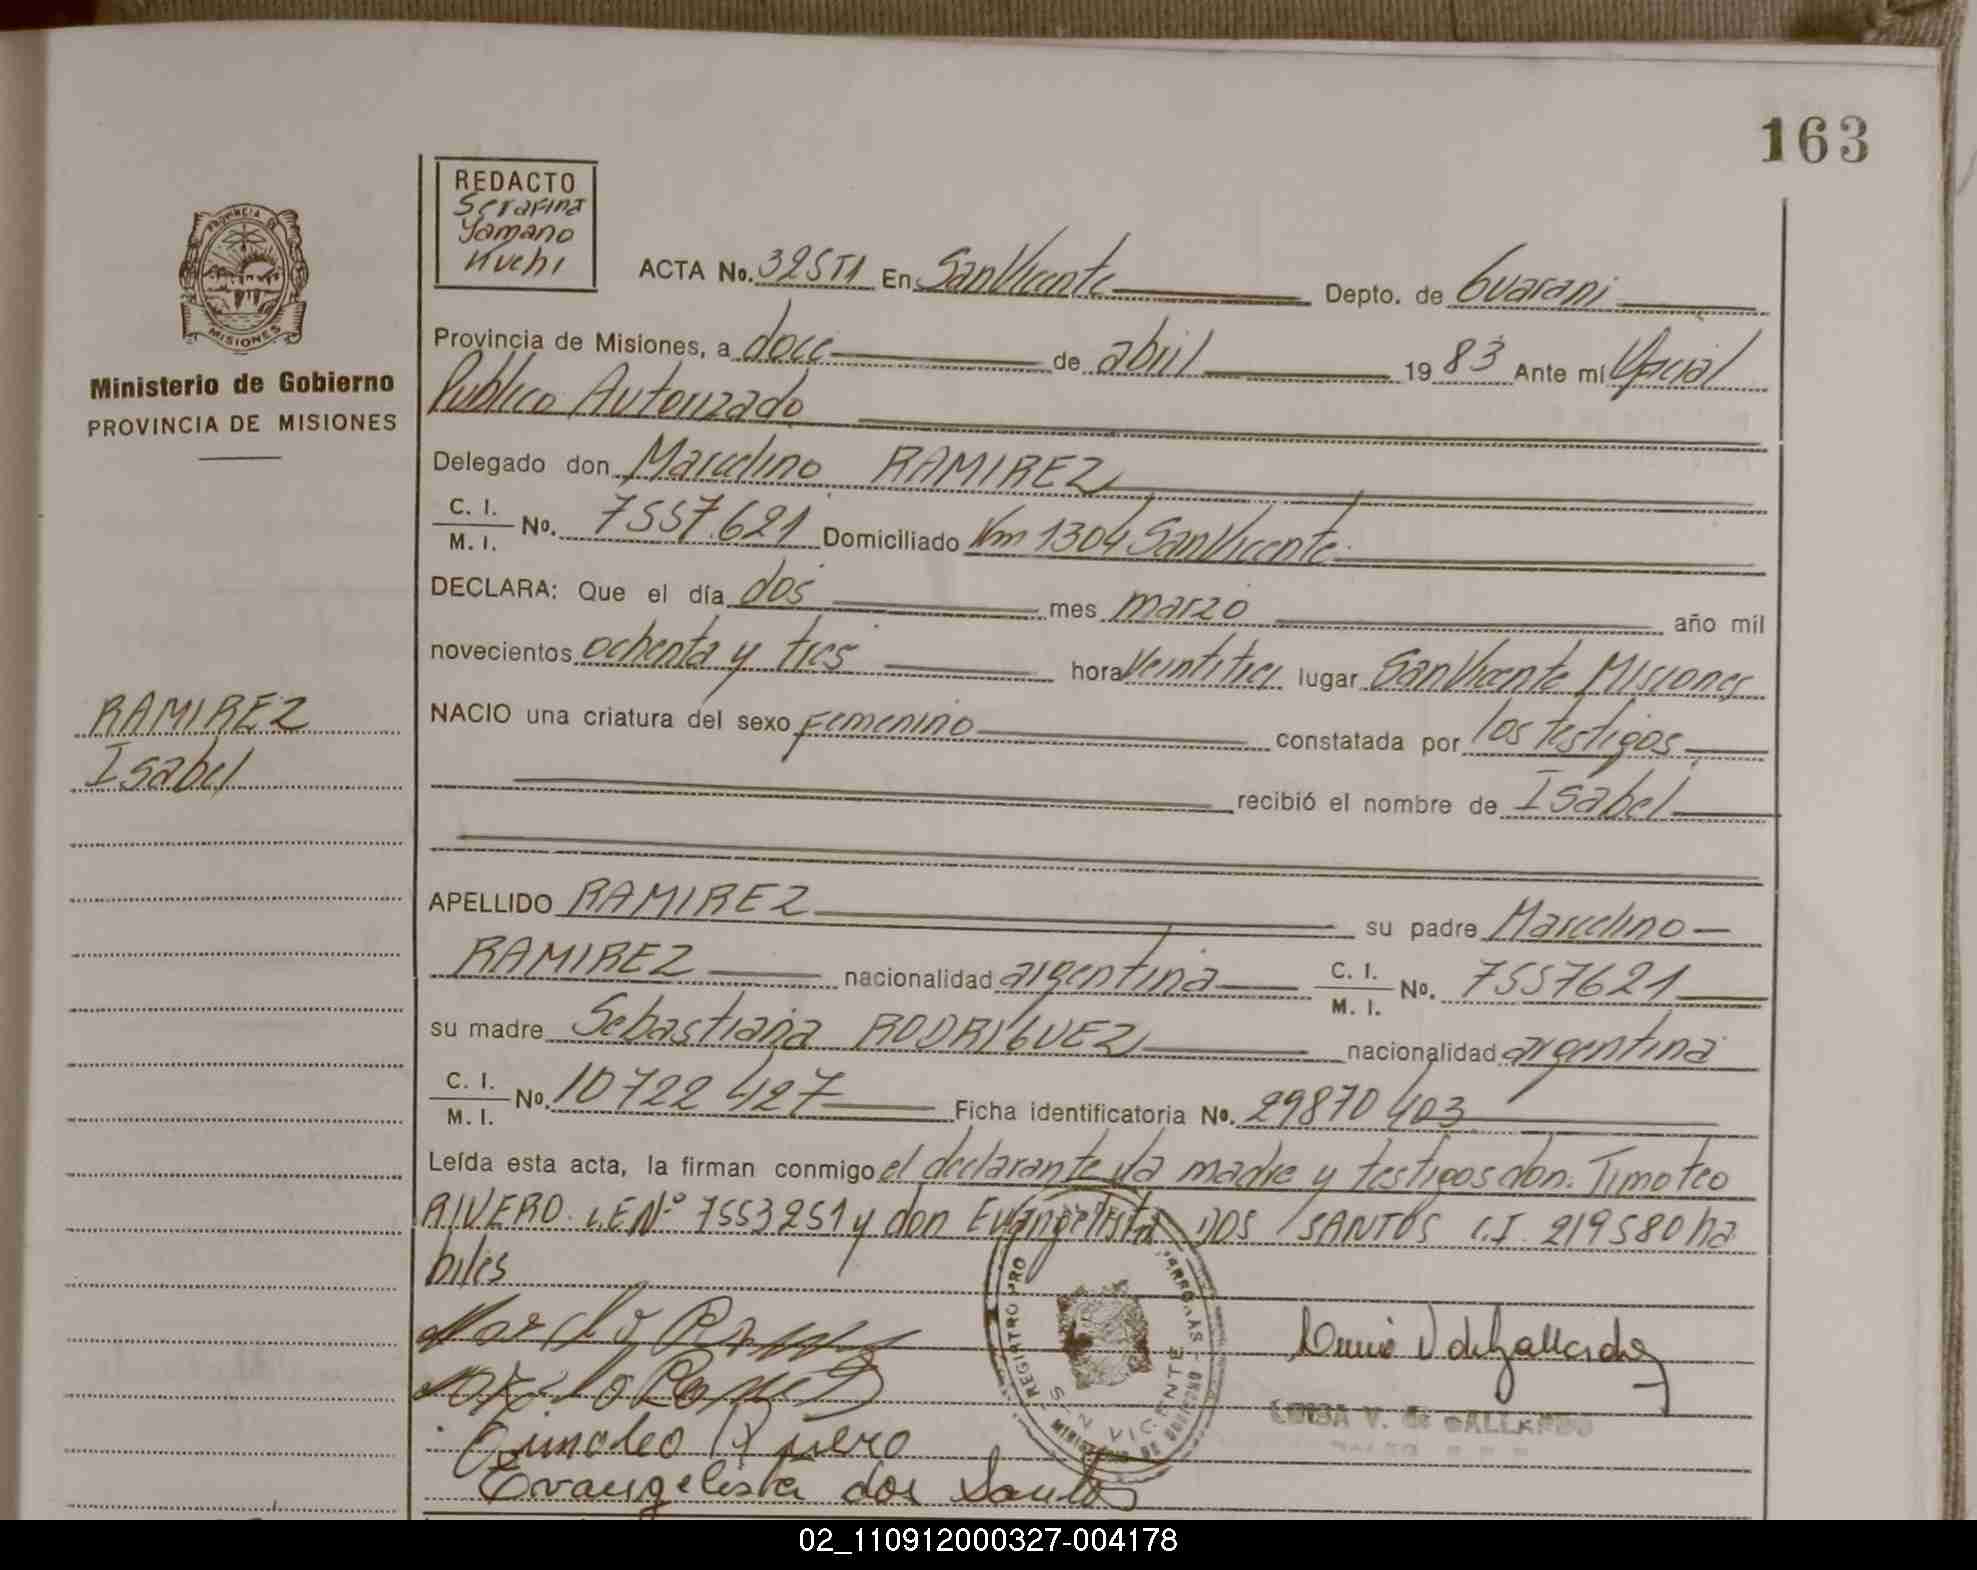 163
REDACTO
Serafina
Yamano
Kuchi
PROVINCIA DE
MISIONES
Ministerio de Gobierno
PROVINCIA DE MISIONES
ACTA No. En San Vicente Depto. de Guarani
Provincia de Misiones, a doce de abril 1983 Ante mí Oficial
Publico Autorizado
Delegado don Marcelino RAMIREZ
C. I. / M. I. No. 7557.621 Domiciliado Km 1304 San Vicente
DECLARA: Que el día dos mes marzo año mil
novecientos ochenta y tres hora veintitres lugar San Vicente Misiones
RAMIREZ
Isabel
NACIO una criatura del sexo femenino constatada por los testigos
recibió el nombre de Isabel
APELLIDO RAMIREZ su padre Marcelino
RAMIREZ nacionalidad argentina C. I. / M. I. No. 7557621
su madre Sebastiana RODRIGUEZ nacionalidad argentina
C. I. / M. I. No. 10722427 Ficha identificatoria No. 29870403
Leída esta acta, la firman conmigo el declarante la madre y testigos don: Timoteo
RIVERO LE Nº 7553251 y don Evangelista DOS SANTOS C.I. 219580 ha
biles
REGISTRO PRO
SAN VICENTE
MINISTERIO DE GOBIERNO
LUISA V. de GALLARDO
Timoteo Rivero
Evangelista dos Santos
02_110912000327-004178